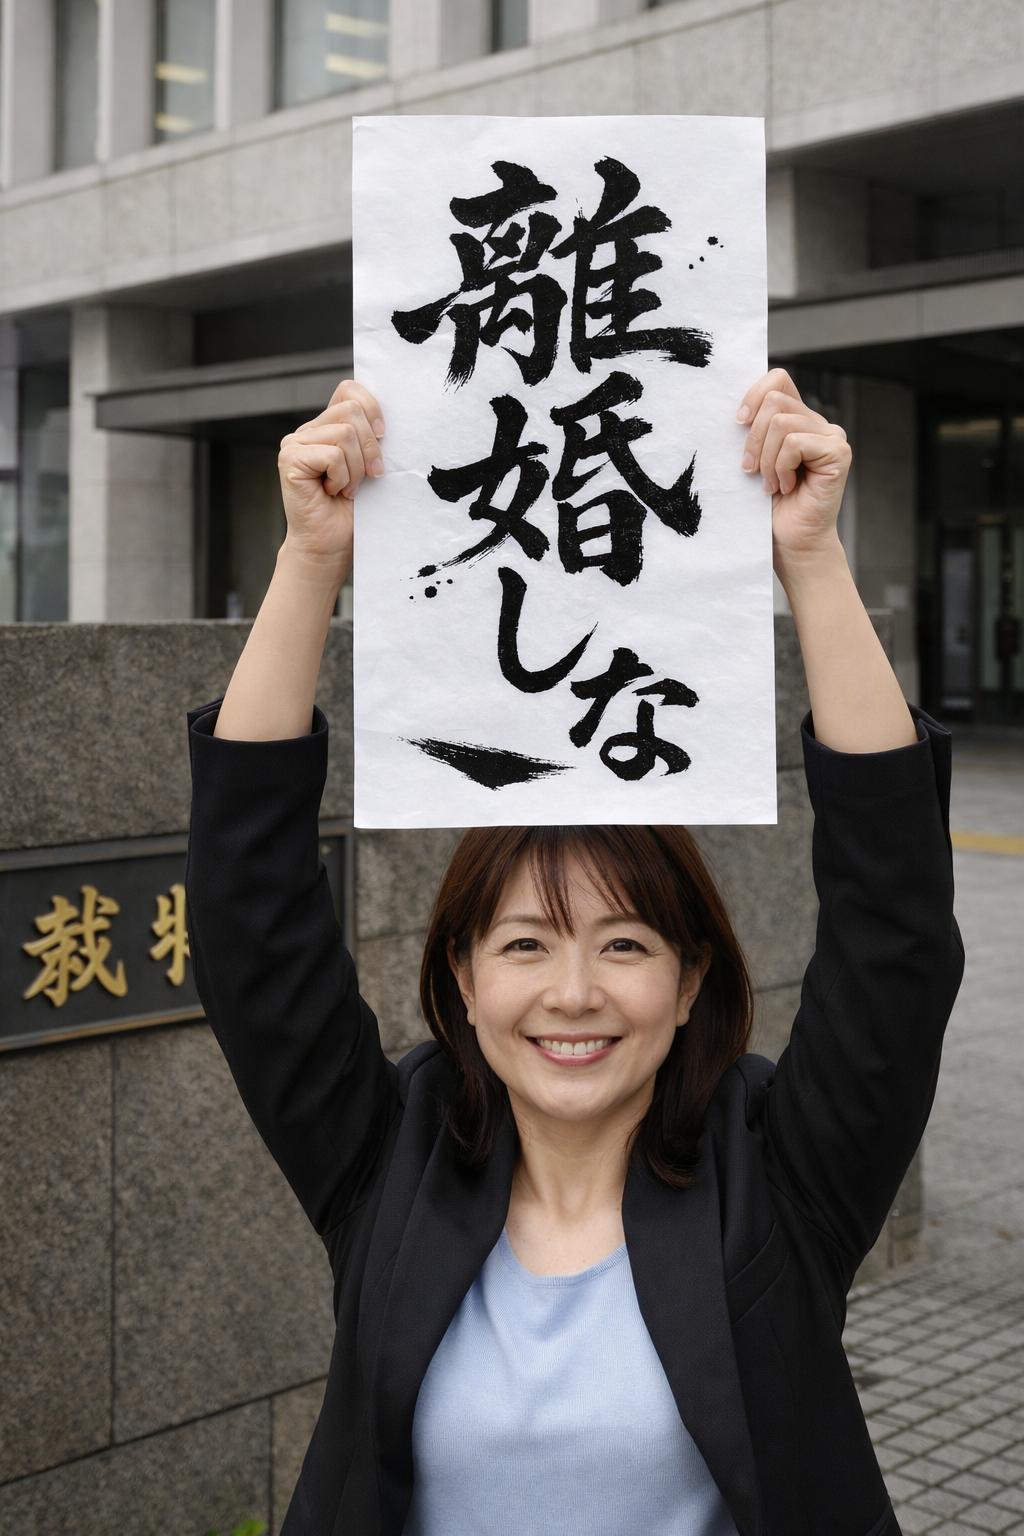 離婚しな
裁